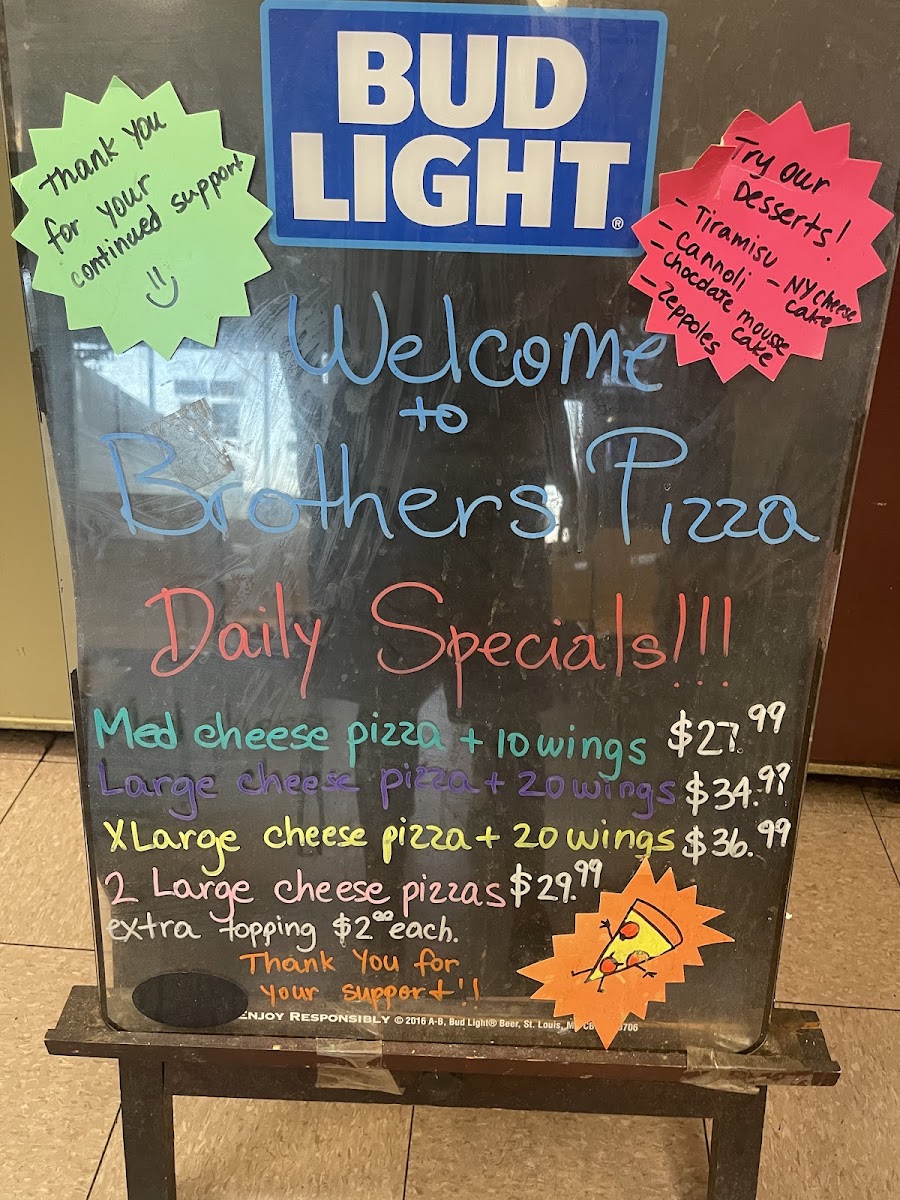 BUD
LIGHT®
Thank You
for your
continued support
Try our
Desserts!
- Tiramisu
- Cannoli
- NY cheese
cake
- chocolate mousse
cake
- Zeppoles
Welcome
to
Brothers Pizza
Daily Specials!!!
Med cheese pizza + 10 wings $27.99
Large cheese pizza + 20 wings $34.99
XLarge cheese pizza + 20 wings $36.99
2 Large cheese pizzas $29.99
extra topping $2.00 each.
Thank You for
your support!!
ENJOY RESPONSIBLY © 2016 A-B, Bud Light® Beer, St. Louis,